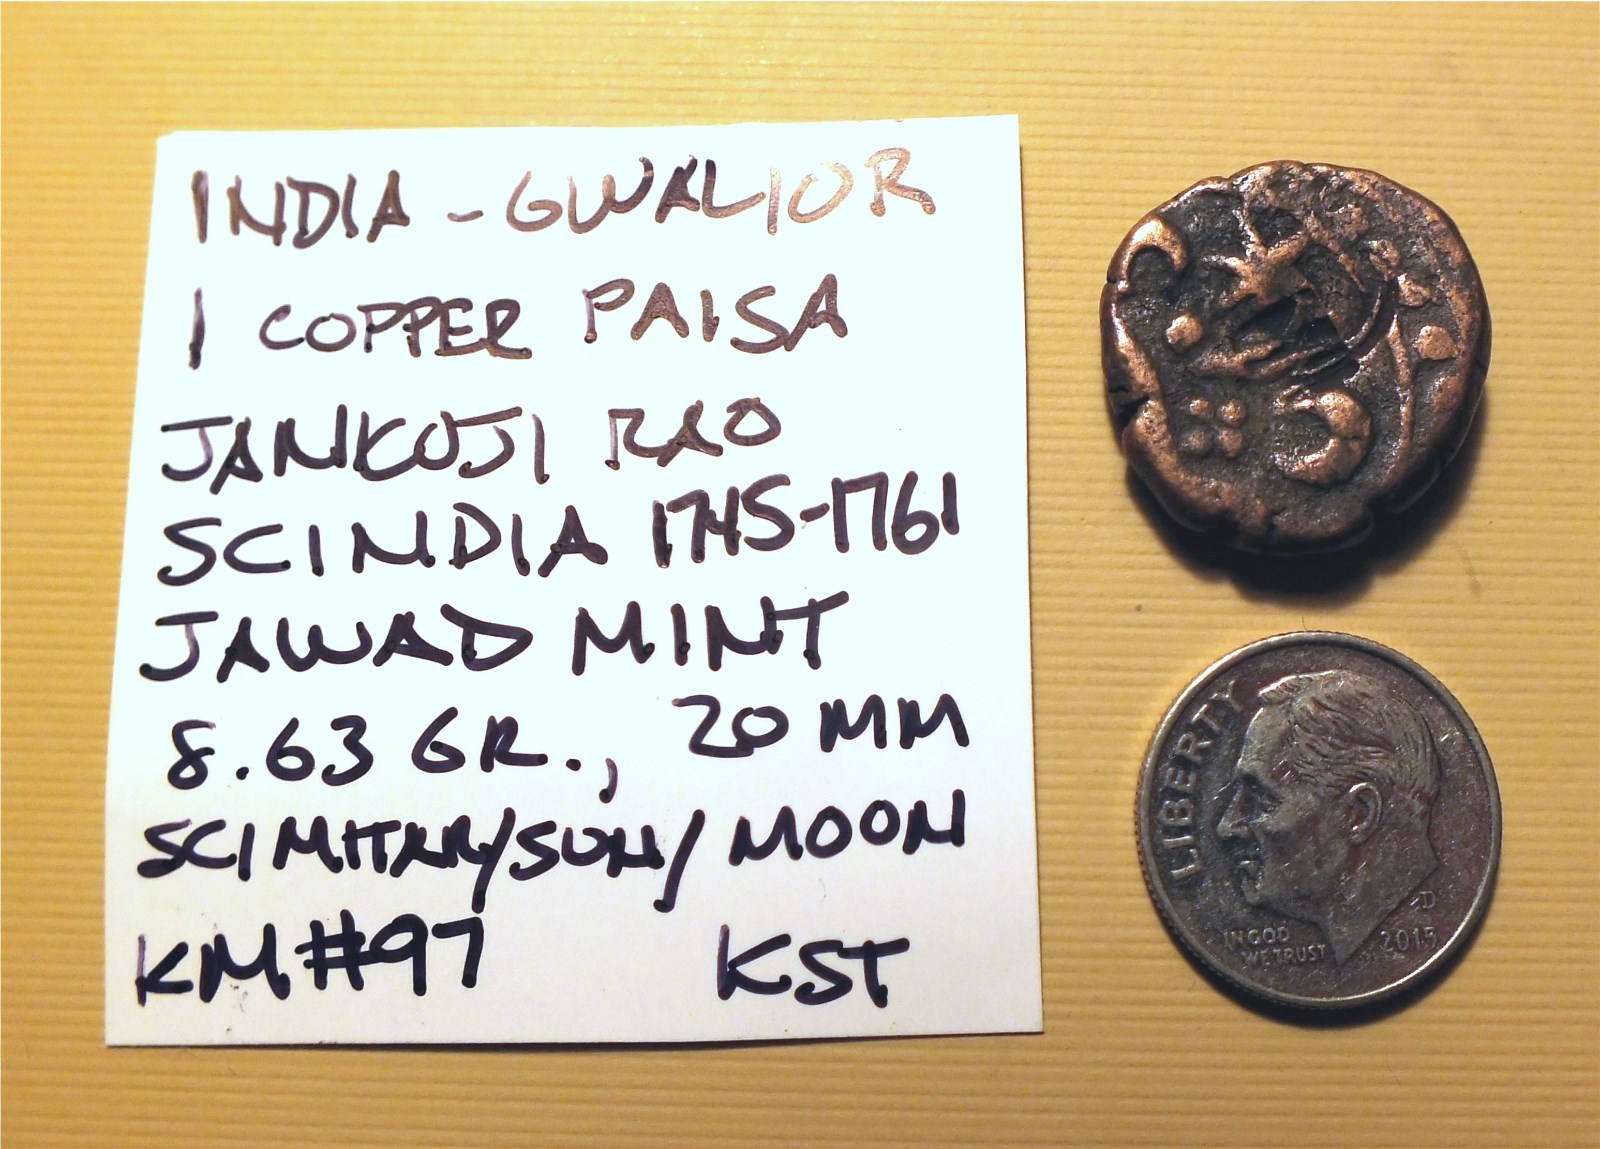 INDIA - GWALIOR
1 COPPER PAISA
JANKOJI RAO
SCINDIA 1745-1761
JAWAD MINT
8.63 GR., 20 MM
SCIMITAR/SUN/MOON
KM#97 KST
LIBERTY
IN GOD
WE TRUST
D
2015